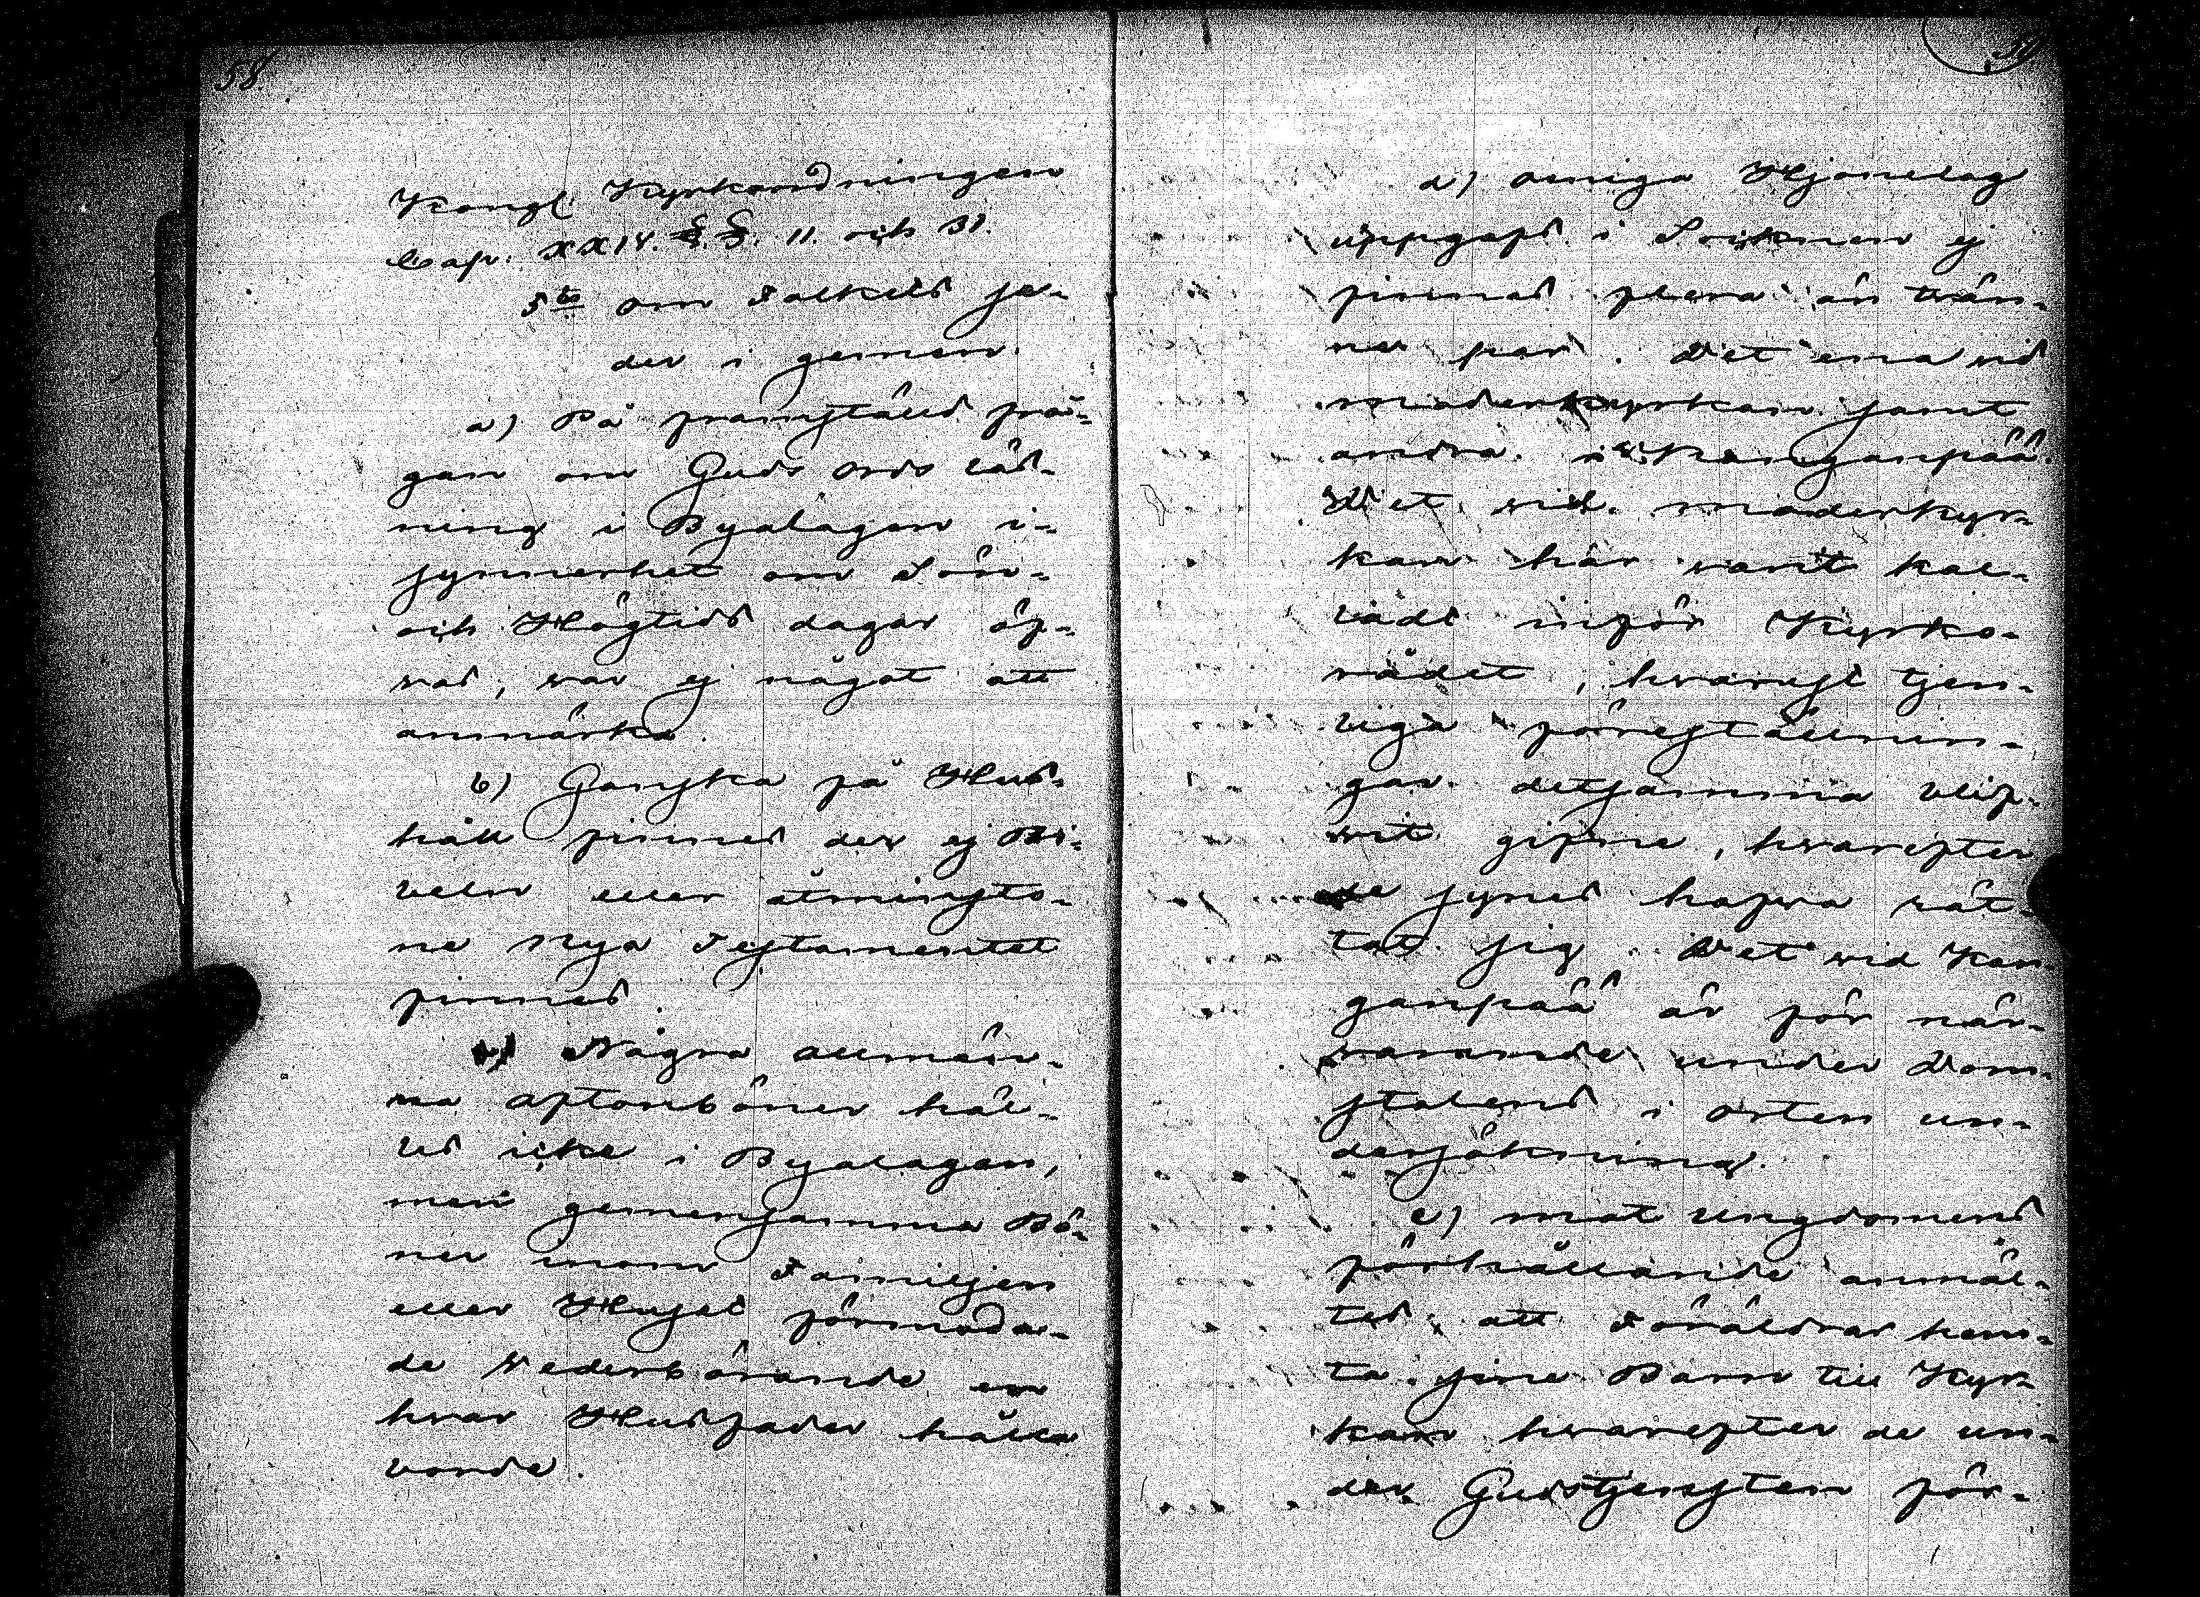 58.
Kongl. Kyrkoordningen
Cap. XXIV. §.§. 11. och 31.
5to om Folkets se-
der i gemen.
a) På framstäld frå-
gan om Guds ords läs-
ning i Byalagen i-
synnerhet om Sön-
och Högtids dagar öf-
vas, var ej något att
anmärka.
b) Ganska få Hus-
håll finnes der ej Bi-
beln eller åtminsto-
ne Nya Testamentet
finnes.
c) Några allmän-
na aftonböner hål-
les icke i Byalagen,
men gemensamma Bö-
ner inom Familjen
eller Huset förmoda-
de vederbörande en
hvar Husfader hålla
borde.
59
d) oeniga Hjonelag
uppgafs i Socknen ej
finnas flera än tven-
ne par. Det ena vid
moderkyrkan samt
andra i Kanganpää.
Det vid moderkyr-
kan här varit kal-
ladt inför Kyrko-
rådet, hvarest tjen-
liga föreställnin-
gar detsamma blif-
vit gifne, hvarefter
de synes hafva rät-
tat sig. Det vid Kan-
ganpää är för när-
varande under Dom-
stolens i orten un-
dersökning.
e) mot ungdomens
förhållande anmäl-
tes, att Föräldrar hem-
ta sine Barn till Kyr-
kan hvarefter de un-
der Gudstjensten för-